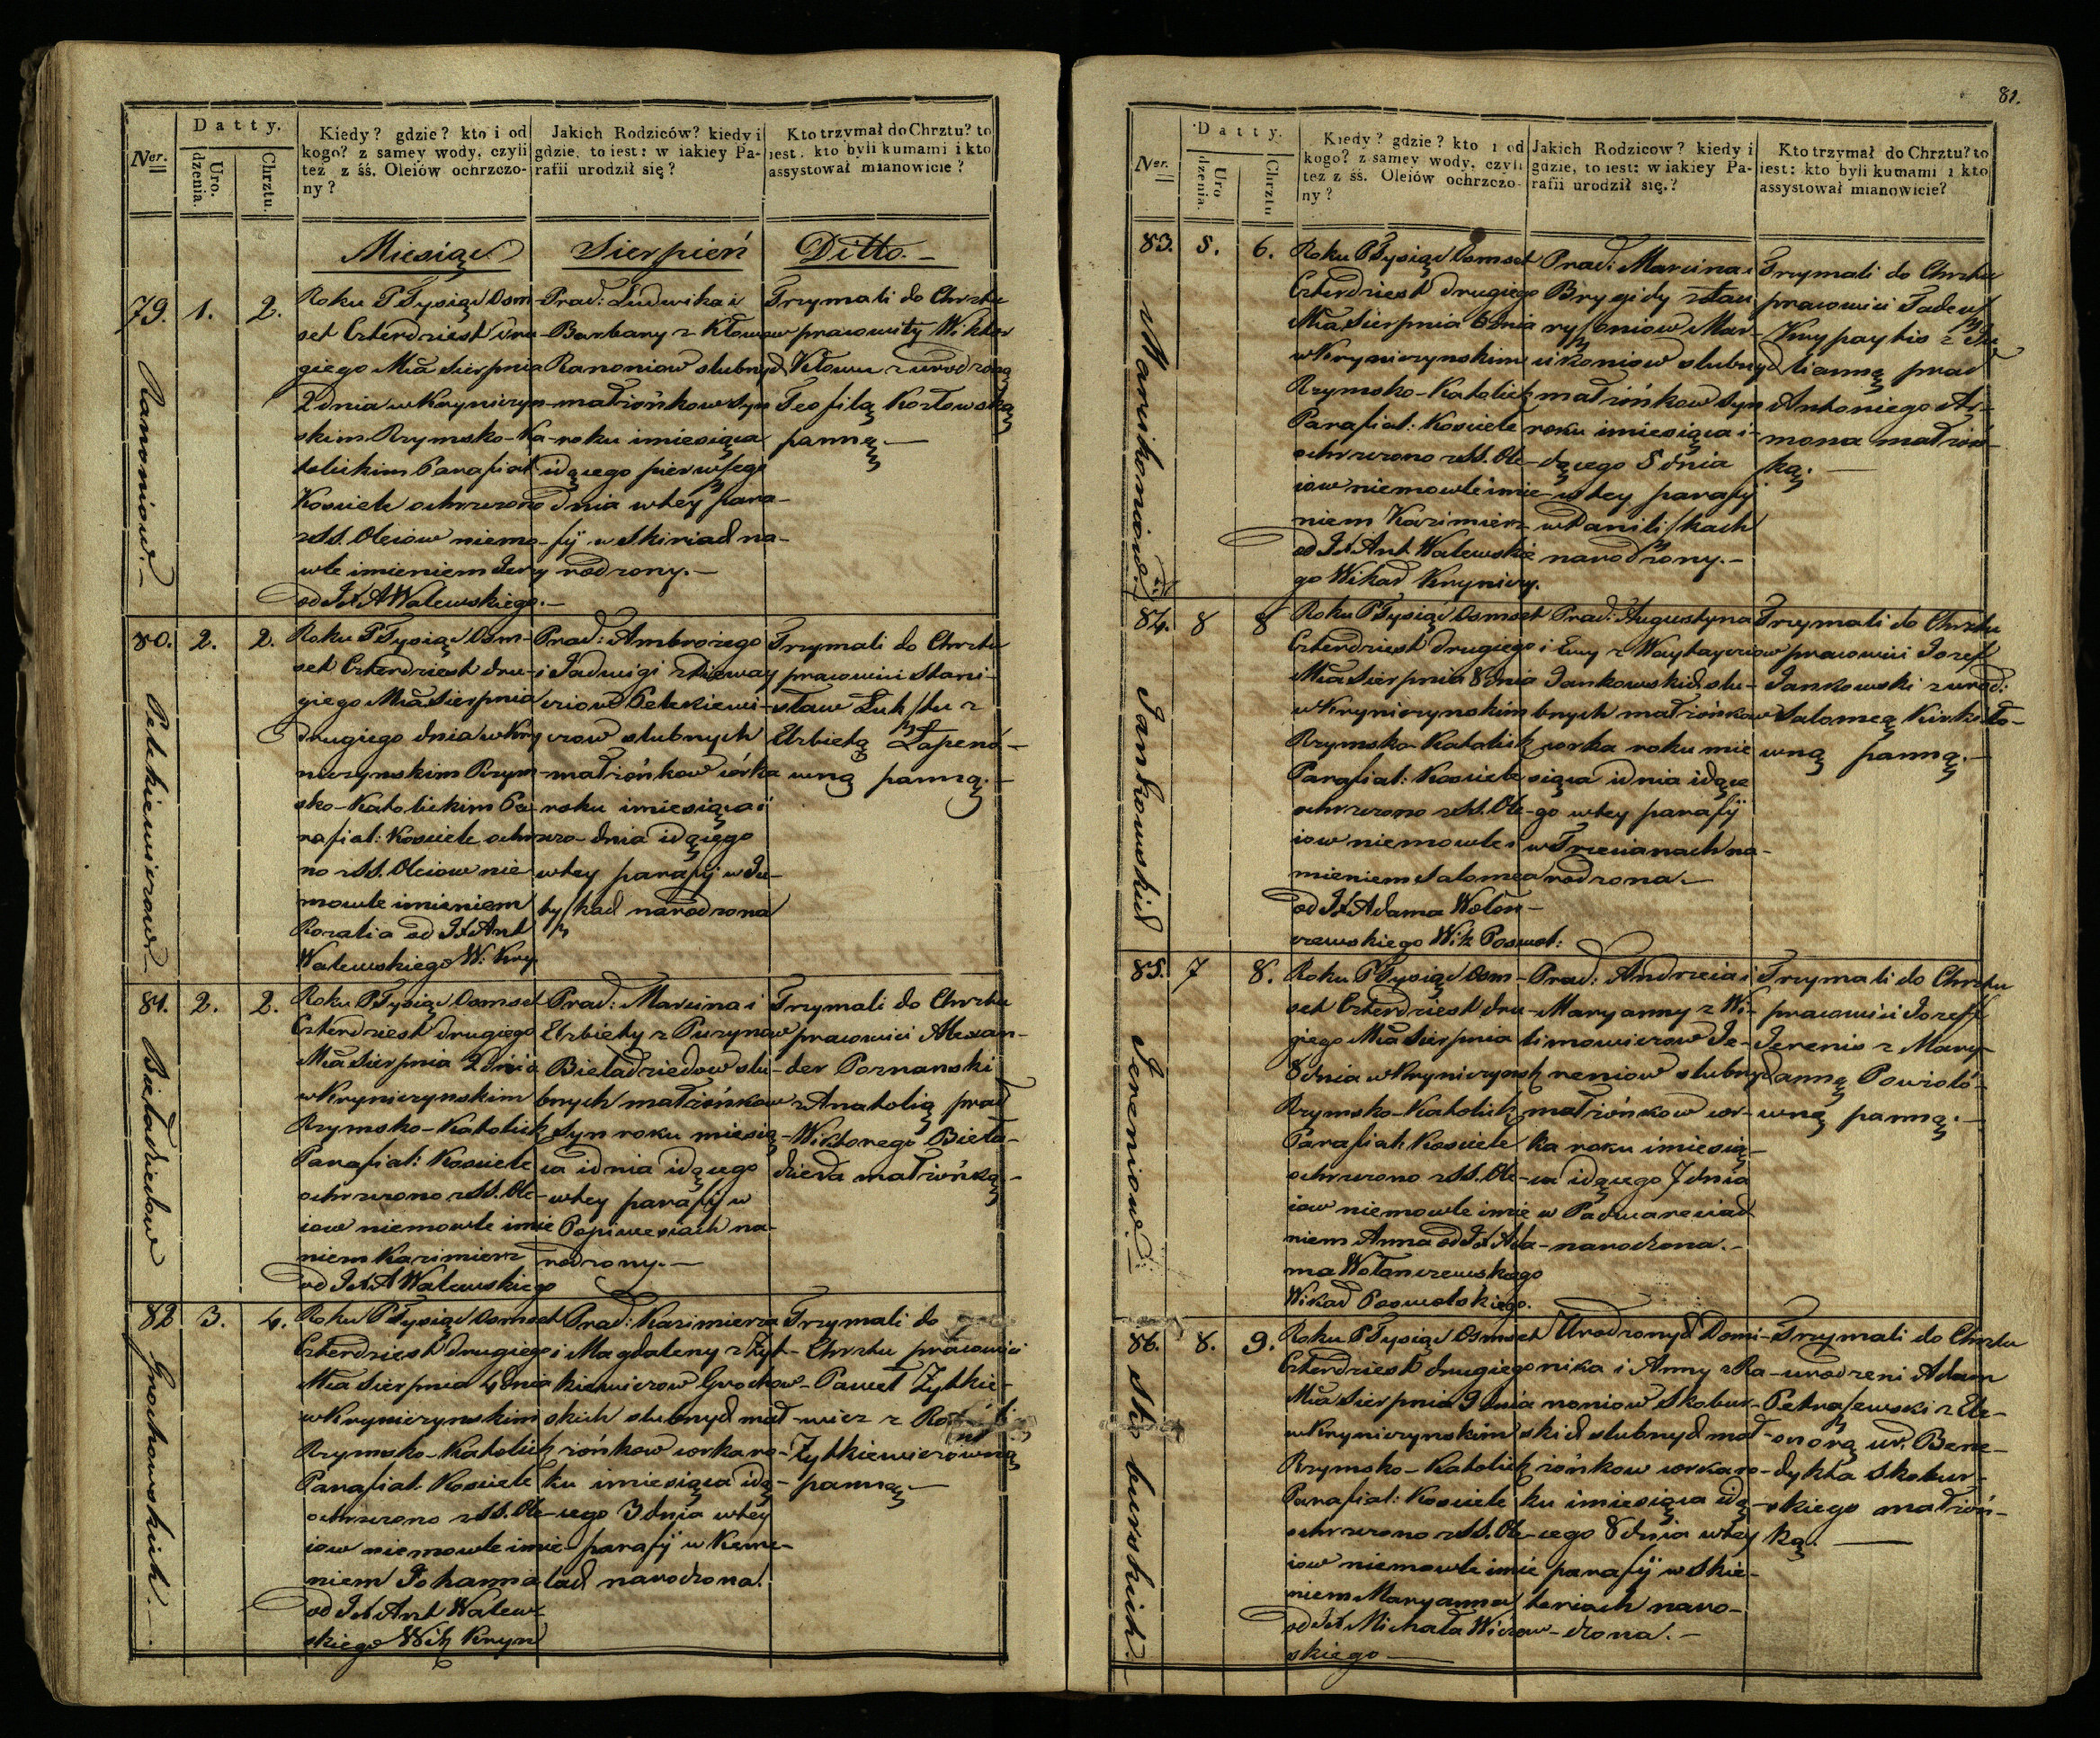 Ner.
Datty.
Uro. dzenia.
Chrztu.
Kiedy? gdzie? kto i od
kogo? z samey wody, czyli
tez z śś. Oleiów ochrzczo-
ny?
Jakich Rodziców? kiedy i
gdzie, to iest: w iakiey Pa-
rafii urodził się?
Kto trzymał do Chrztu? to
iest, kto byli kumami i kto
assystował mianowicie?
Miesiąc Sierpień Ditto.-
79.
1.
2.
Ranoniow.-
Roku P Tysiąc Osm-
set Czterdziest dru-
giego Mca Sierpnia
2 dnia w Kryniczyn-
skim Rzymsko-Ka-
tolickim Parafial
Kosciele ochrzczono
z SS. Oleiow niemo-
wle imieniem Jerzy
od JX A Walewskiego.-
Prac: Ludwika i
Barbary z Kłowow
Ranoniow slubnych
małżonkow Syn
roku i miesiąca
idącego pierwszego
dnia w tey para-
fij w Skiriach na-
rodzony.-
Trzymali do Chrztu
pracowity Wiktor
Kłowu z urodzoną
Teofilą Kozłowską
panną.-
80.
2.
2.
Petekiewiczow-
Roku P Tysiąc Osm-
set Czterdziest dru-
giego Mca Sierpnia
drugiego dnia w Kry
niczynskim Rzym-
sko-Katolickim Pa-
rafial: Kosciele ochrzczo-
no z SS. Oleiow nie
mowle imieniem
Rozalia od JX Ant
Walewskiego W: Kry
Prac: Ambrożego
i Jadwigi
czow Petekiewi-
czow slubnych
małżonkow córka
roku i miesiąca i
dnia idącego
w tey parafij w
narodzona
Trzymali do Chrztu
pracowici Stani-
sław z
Elzbietą Łapeno-
wną panną.-
81.
2.
2.
Bieladziedow
Roku P Tysiąc Osmset
Czterdziest drugiego
Mca Sierpnia 2 dnia
w Kryniczynskim
Rzymsko-Katolick
Parafial: Kosciele
ochrzczono z SS. Ole-
iow niemowle imie
niem Kazimierz
od JX A Walewskiego
Prac: Marcina i
Elzbiety z Puzynow
Bieladziedow slu-
bnych małżonkow
Syn roku miesią-
ca i dnia idącego
w tey parafij w
Popiwesiach na-
rodzony.-
Trzymali do Chrztu
pracowici Alexan-
der Poznanski
z Anatolią prac
Wiktorego Biela-
dzieda małżonką-
82
3.
4.
Grochowskich.-
Roku P Tysiąc Osmset
Czterdziest drugiego
Mca Sierpnia 4 dnia
w Kryniczynskim
Rzymsko-Katolick
Parafial. Kosciele
ochrzczono z SS. Ole-
iow niemowle imie
niem Johanna
od JX Ant Walew-
skiego Wik Kryn
Prac: Kazimierza
i Magdaleny z Żyt-
kiewiczow Grochow-
skich slubnych mał-
żonkow corka ro-
ku i miesiąca idą-
cego 3 dnia w tey
parafij w
narodzona.
Trzymali do
Chrztu pracowici
Paweł Żytkie-
wicz z
Żytkiewiczowną
panną.-
81.
Ner.
Datty.
Uro dzenia.
Chrztu
Kiedy? gdzie? kto i od
kogo? z samey wody, czyli
też z śś. Oleiów ochrzczo-
ny?
Jakich Rodzicow? kiedy i
gdzie, to iest: w iakiey Pa-
rafii urodził się.?
Kto trzymał do Chrztu? to
iest: kto byli kumami i kto
assystował mianowicie?
83.
5.
6.
Marcikoniow.
Roku P Tysiąc Osmset
Czterdziest drugiego
Mca Sierpnia 6 dnia
w Kryniczynskim
Rzymsko-Katolick
Parafial: Kosciele
ochrzczono z SS. Ole-
iow niemowle imie-
niem Kazimierz
od JX Ant Walewskie
go Wikar Krynicz.
Prac: Marcina i
Brygidy z Stan
ryszoniow Mar-
cikoniow slubnych
małżonkow Syn
roku i miesiąca i-
dącego 5 dnia
w tey parafij
w Daniliszkach
narodzony.-
Trzymali do Chrztu
pracowici Tadeusz
z Ju
lianną prac
Antoniego Ar-
mona małżon-
ką.-
84.
8
8
Jankowskich
Roku P Tysiąc Osmset
Czterdziest drugiego
Mca Sierpnia 8 dnia
w Kryniczynskim
Rzymsko-Katolick
Parafial: Kosciele
ochrzczono z SS. Ole-
iow niemowle i
mieniem Salomea
od JX Adama Wołon-
czewskiego Wik Poswol:
Prac: Augustyna
i Ewy z Woytayciow
Jankowskich slu-
bnych małżonkow
corka roku mie
siąca i dnia idące
go w tey parafij
w Trecianach na-
rodzona-
Trzymali do Chrztu
pracowici Jozef
Jankowski z urod:
Salomeą
wną panną.-
85.
7
8.
Jereniow.-
Roku P Tysiąc Osm-
set Czterdziest dru-
giego Mca Sierpnia
8 dnia w Kryniczynsk
Rzymsko-Katolick
Parafial: Kosciele
ochrzczono z SS. Ole-
iow niemowle imie
niem Anna od JX Ada-
ma Wołonczewskiego
Wikar Poswolskiego.
Prac: Andrzeia i
Maryanny z Wi-
limowiczow Je-
reniow slubnych
małżonkow cor-
ka roku i miesią-
ca idącego 7 dnia
w Padwareciach
narodzona.-
Trzymali do Chrztu
pracowici Jozeff
Jerenis z Mary-
anną Powiolo-
wną panną.-
86.
8.
9.
Skoburskich.-
Roku P Tysiąc Osmset
Czterdziest drugiego
Mca Sierpnia 9 dnia
w Kryniczynskim
Rzymsko-Katolick
Parafial: Kosciele
ochrzczono z SS. Ole-
iow niemowle imie
niem Maryanna
od JX Michała Wiczow-
skiego-
Urodzonych Domi-
nika i Anny z Ra-
noniow Skobur-
skich slubnych mał-
żonkow corka ro-
ku i miesiąca idą-
cego 8 dnia w tey
parafij w Skie-
teriach naro-
dzona.-
Trzymali do Chrztu
urodzeni Adam
Petraszewski z Ele-
onorą ur. Bene-
dykta Skobur-
skiego małżon-
ką.-